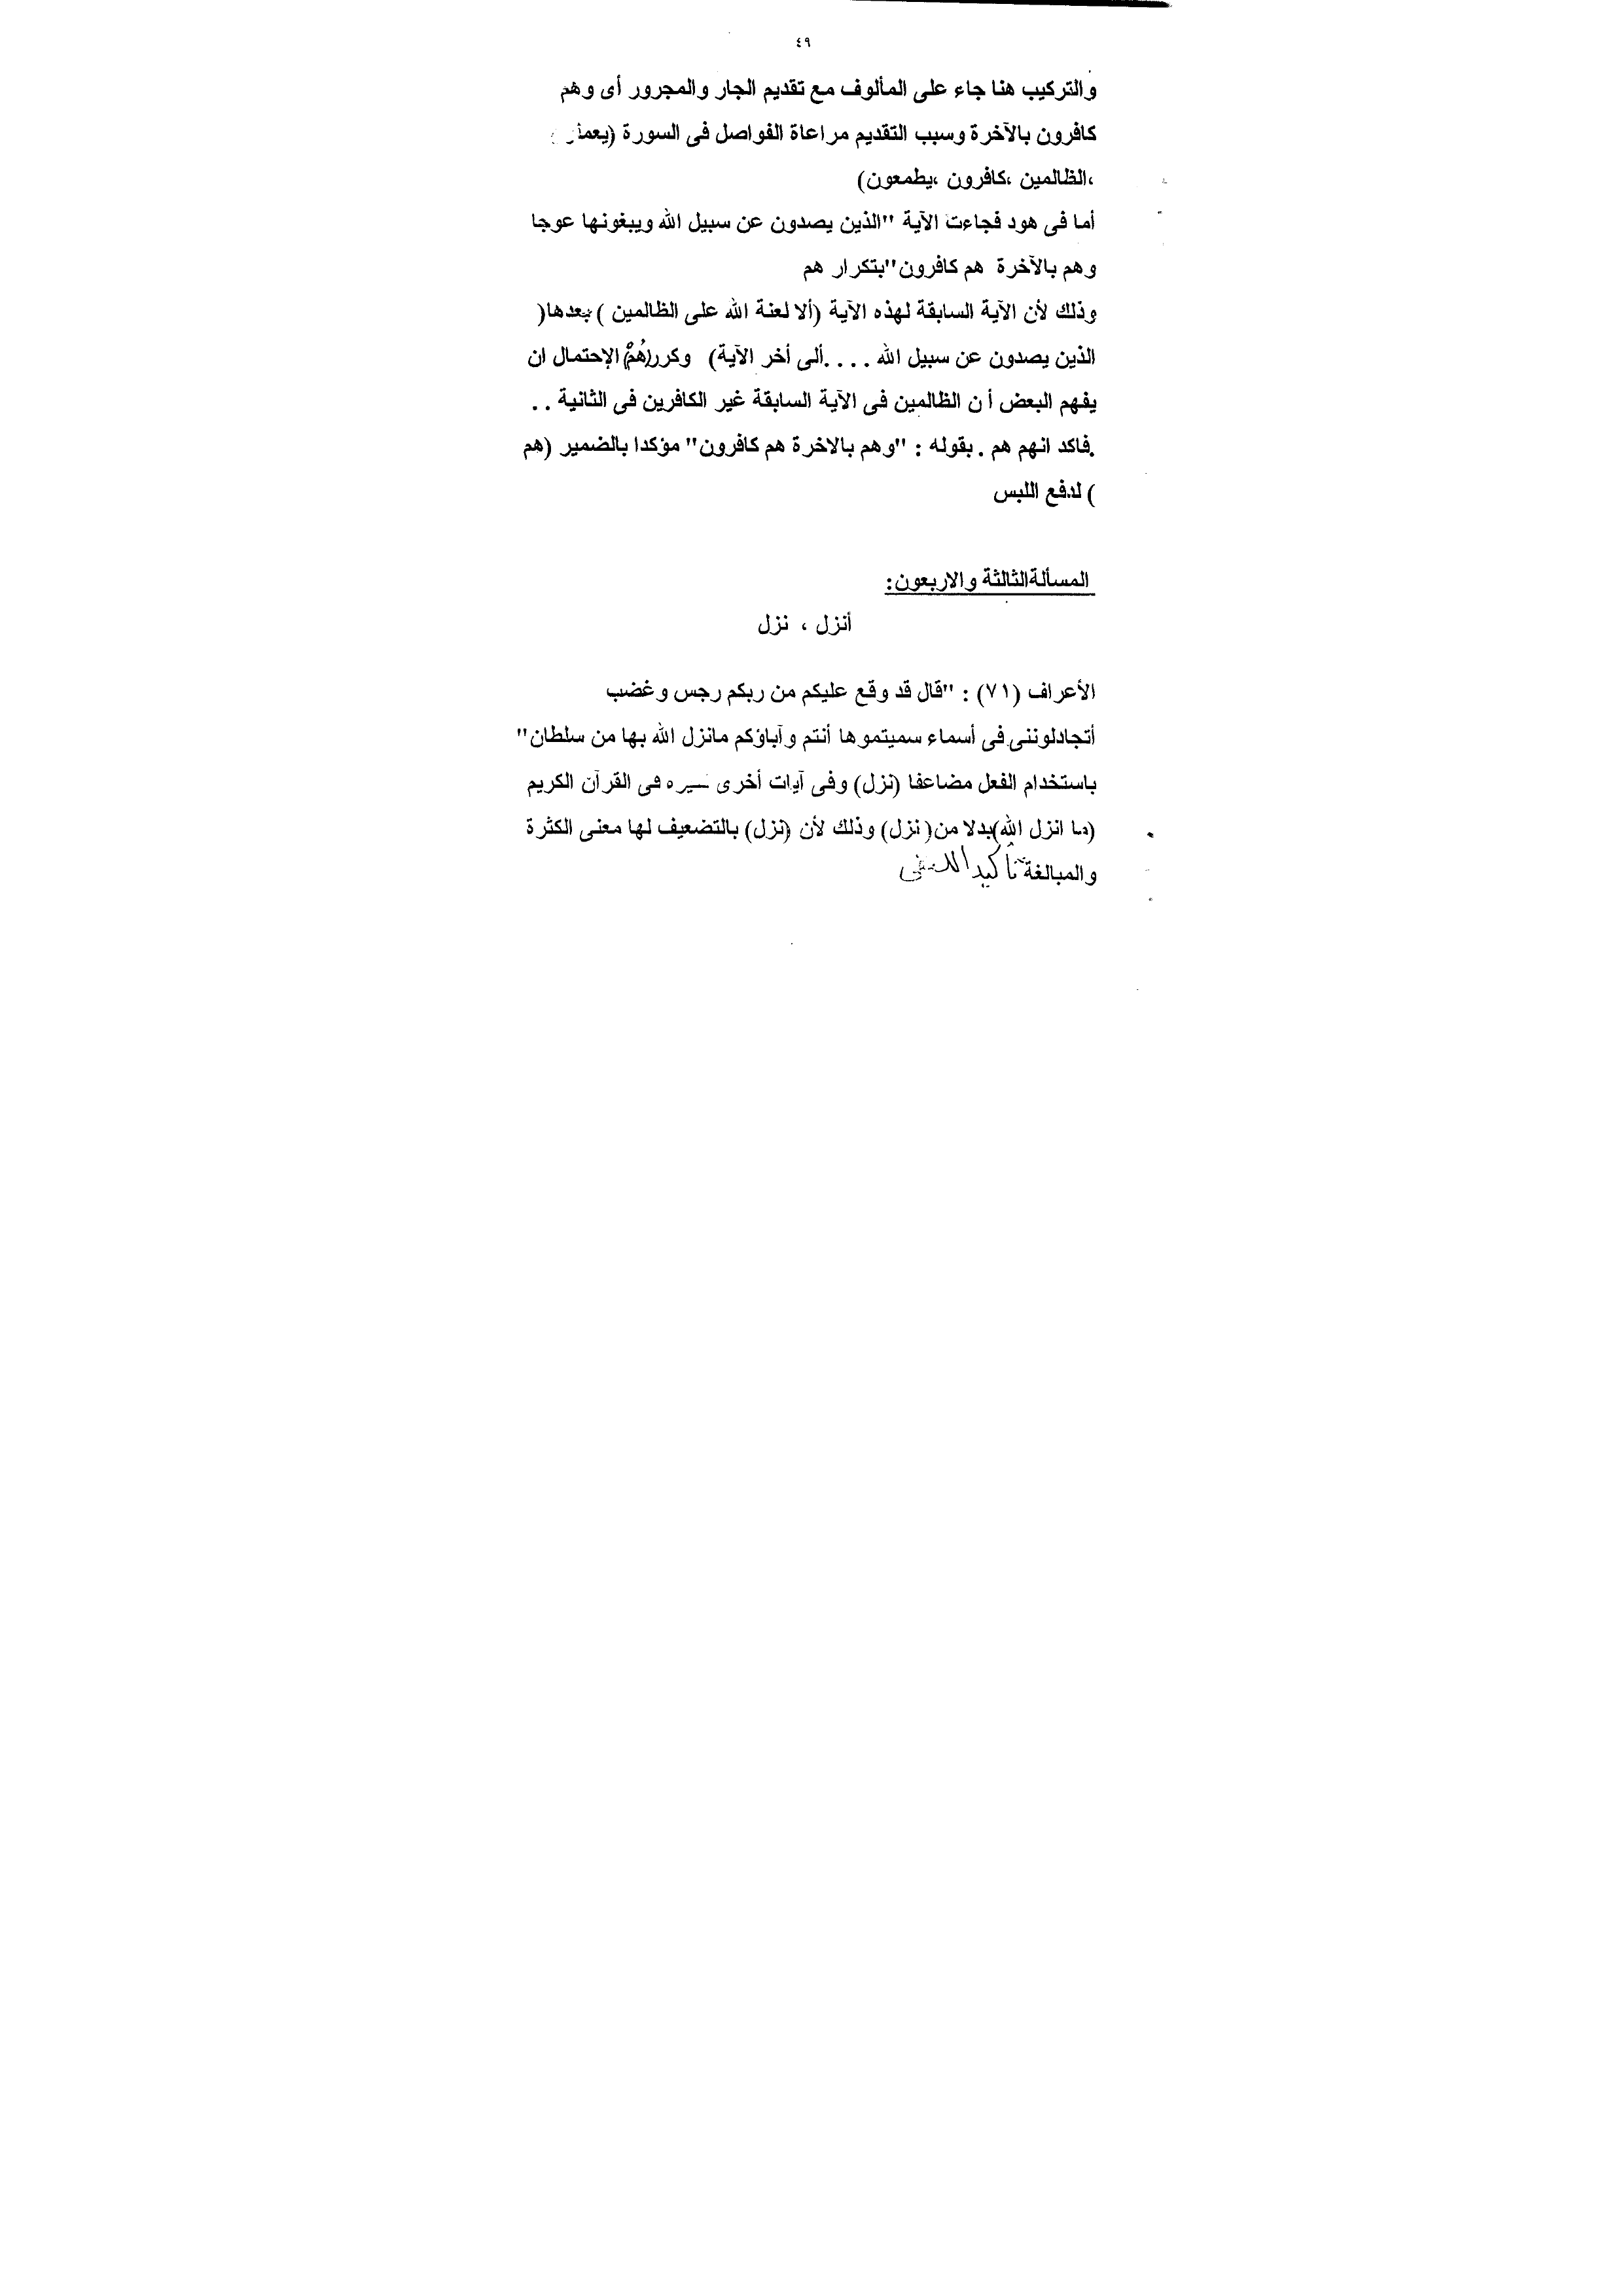 ٤٩
والتركيب هنا جاء على المألوف مع تقديم الجار والمجرور أى وهم
كافرون بالآخرة وسبب التقديم مراعاة الفواصل فى السورة
،الظالمين ،كافرون ،يطمعون)
أما فى هود فجاءت الآية "الذين يصدون عن سبيل الله ويبغونها عوجا
وهم بالآخرة هم كافرون"بتكرار هم
وذلك لأن الآية السابقة لهذه الآية (ألا لعنة الله على الظالمين ) بعدها(
الذين يصدون عن سبيل الله ....ألى أخر الآية) وكرر(هُمْ) الإحتمال ان
يفهم البعض أ ن الظالمين فى الآية السابقة غير الكافرين فى الثانية ..
.فاكد انهم هم . بقوله : "وهم بالاخرة هم كافرون" مؤكدا بالضمير (هم
) لدفع اللبس
المسألةالثالثة والاربعون:
أنزل ، نزل
الأعراف (٧١) : "قال قد وقع عليكم من ربكم رجس وغضب
أتجادلوننى فى أسماء سميتموها أنتم وآباؤكم مانزل الله بها من سلطان"
باستخدام الفعل مضاعفا (نزل) وفى آيات أخرى فى القرآن الكريم
(ما انزل الله)بدلا من( نزل) وذلك لأن (نزل) بالتضعيف لها معنى الكثرة
والمبالغة تأكيدا